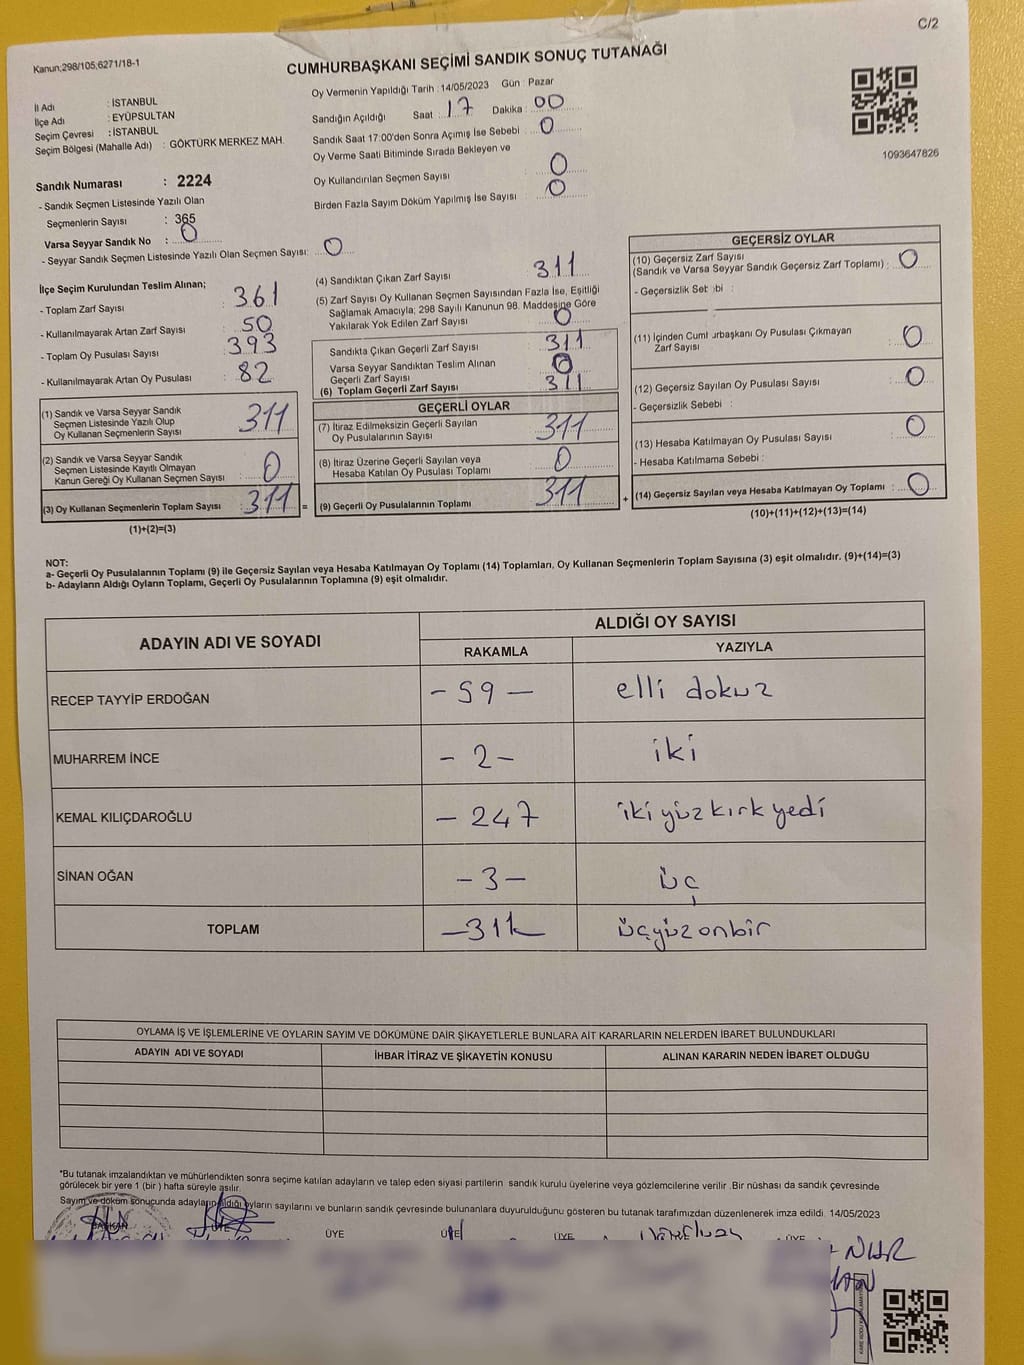 C/2
Kanun:298/105;6271/18-1
CUMHURBAŞKANI SEÇİMİ SANDIK SONUÇ TUTANAĞI
İl Adı : İSTANBUL
İlçe Adı : EYÜPSULTAN
Seçim Çevresi : İSTANBUL
Seçim Bölgesi (Mahalle Adı) : GÖKTÜRK MERKEZ MAH.
Oy Vermenin Yapıldığı Tarih : 14/05/2023 Gün : Pazar
Sandığın Açıldığı Saat : 17 Dakika : 00
Sandık Saat 17:00'den Sonra Açımış İse Sebebi 0
Oy Verme Saati Bitiminde Sırada Bekleyen ve
Oy Kullandırılan Seçmen Sayısı : 0
Birden Fazla Sayım Döküm Yapılmış İse Sayısı : 0
1093647826
Sandık Numarası : 2224
- Sandık Seçmen Listesinde Yazılı Olan
Seçmenlerin Sayısı : 365
Varsa Seyyar Sandık No : 0
- Seyyar Sandık Seçmen Listesinde Yazılı Olan Seçmen Sayısı: 0
İlçe Seçim Kurulundan Teslim Alınan;
- Toplam Zarf Sayısı : 361
- Kullanılmayarak Artan Zarf Sayısı : 50
- Toplam Oy Pusulası Sayısı : 393
- Kullanılmayarak Artan Oy Pusulası : 82
(1) Sandık ve Varsa Seyyar Sandık
Seçmen Listesinde Yazılı Olup
Oy Kullanan Seçmenlerin Sayısı : 311
(2) Sandık ve Varsa Seyyar Sandık
Seçmen Listesinde Kayıtlı Olmayan
Kanun Gereği Oy Kullanan Seçmen Sayısı : 0
(3) Oy Kullanan Seçmenlerin Toplam Sayısı : 311 =
(1)+(2)=(3)
(4) Sandıktan Çıkan Zarf Sayısı 311
(5) Zarf Sayısı Oy Kullanan Seçmen Sayısından Fazla İse, Eşitliği
Sağlamak Amacıyla; 298 Sayılı Kanunun 98. Maddesine Göre
Yakılarak Yok Edilen Zarf Sayısı 0
Sandıkta Çıkan Geçerli Zarf Sayısı : 311
Varsa Seyyar Sandıktan Teslim Alınan
Geçerli Zarf Sayısı 0
(6) Toplam Geçerli Zarf Sayısı : 311
GEÇERLİ OYLAR
(7) İtiraz Edilmeksizin Geçerli Sayılan
Oy Pusulalarının Sayısı : 311
(8) İtiraz Üzerine Geçerli Sayılan veya
Hesaba Katılan Oy Pusulası Toplamı : 0
(9) Geçerli Oy Pusulalarının Toplamı : 311 +
GEÇERSİZ OYLAR
(10) Geçersiz Zarf Sayısı
(Sandık ve Varsa Seyyar Sandık Geçersiz Zarf Toplamı) : 0
- Geçersizlik Sebebi :
(11) İçinden Cumhurbaşkanı Oy Pusulası Çıkmayan
Zarf Sayısı 0
(12) Geçersiz Sayılan Oy Pusulası Sayısı : 0
- Geçersizlik Sebebi :
(13) Hesaba Katılmayan Oy Pusulası Sayısı : 0
- Hesaba Katılmama Sebebi :
(14) Geçersiz Sayılan veya Hesaba Katılmayan Oy Toplamı : 0
(10)+(11)+(12)+(13)=(14)
NOT:
a- Geçerli Oy Pusulalarının Toplamı (9) ile Geçersiz Sayılan veya Hesaba Katılmayan Oy Toplamı (14) Toplamları, Oy Kullanan Seçmenlerin Toplam Sayısına (3) eşit olmalıdır. (9)+(14)=(3)
b- Adayların Aldığı Oyların Toplamı, Geçerli Oy Pusulalarının Toplamına (9) eşit olmalıdır.
ADAYIN ADI VE SOYADI
ALDIĞI OY SAYISI
RAKAMLA YAZIYLA
RECEP TAYYİP ERDOĞAN - 59 - elli dokuz
MUHARREM İNCE - 2 - iki
KEMAL KILIÇDAROĞLU - 247 ikiyüz kırk yedi
SİNAN OĞAN - 3 - üç
TOPLAM - 311 - üçyüz onbir
OYLAMA İŞ VE İŞLEMLERİNE VE OYLARIN SAYIM VE DÖKÜMÜNE DAİR ŞİKAYETLERLE BUNLARA AİT KARARLARIN NELERDEN İBARET BULUNDUKLARI
ADAYIN ADI VE SOYADI İHBAR İTİRAZ VE ŞİKAYETİN KONUSU ALINAN KARARIN NEDEN İBARET OLDUĞU
*Bu tutanak imzalandıktan ve mühürlendikten sonra seçime katılan adayların ve talep eden siyasi partilerin sandık kurulu üyelerine veya gözlemcilerine verilir .Bir nüshası da sandık çevresinde
görülecek bir yere 1 (bir ) hafta süreyle asılır.
Sayım ve döküm sonucunda adayların aldığı oyların sayılarını ve bunların sandık çevresinde bulunanlara duyurulduğunu gösteren bu tutanak tarafımızdan düzenlenerek imza edildi. 14/05/2023
BAŞKAN ÜYE ÜYE ÜYE ÜYE ÜYE